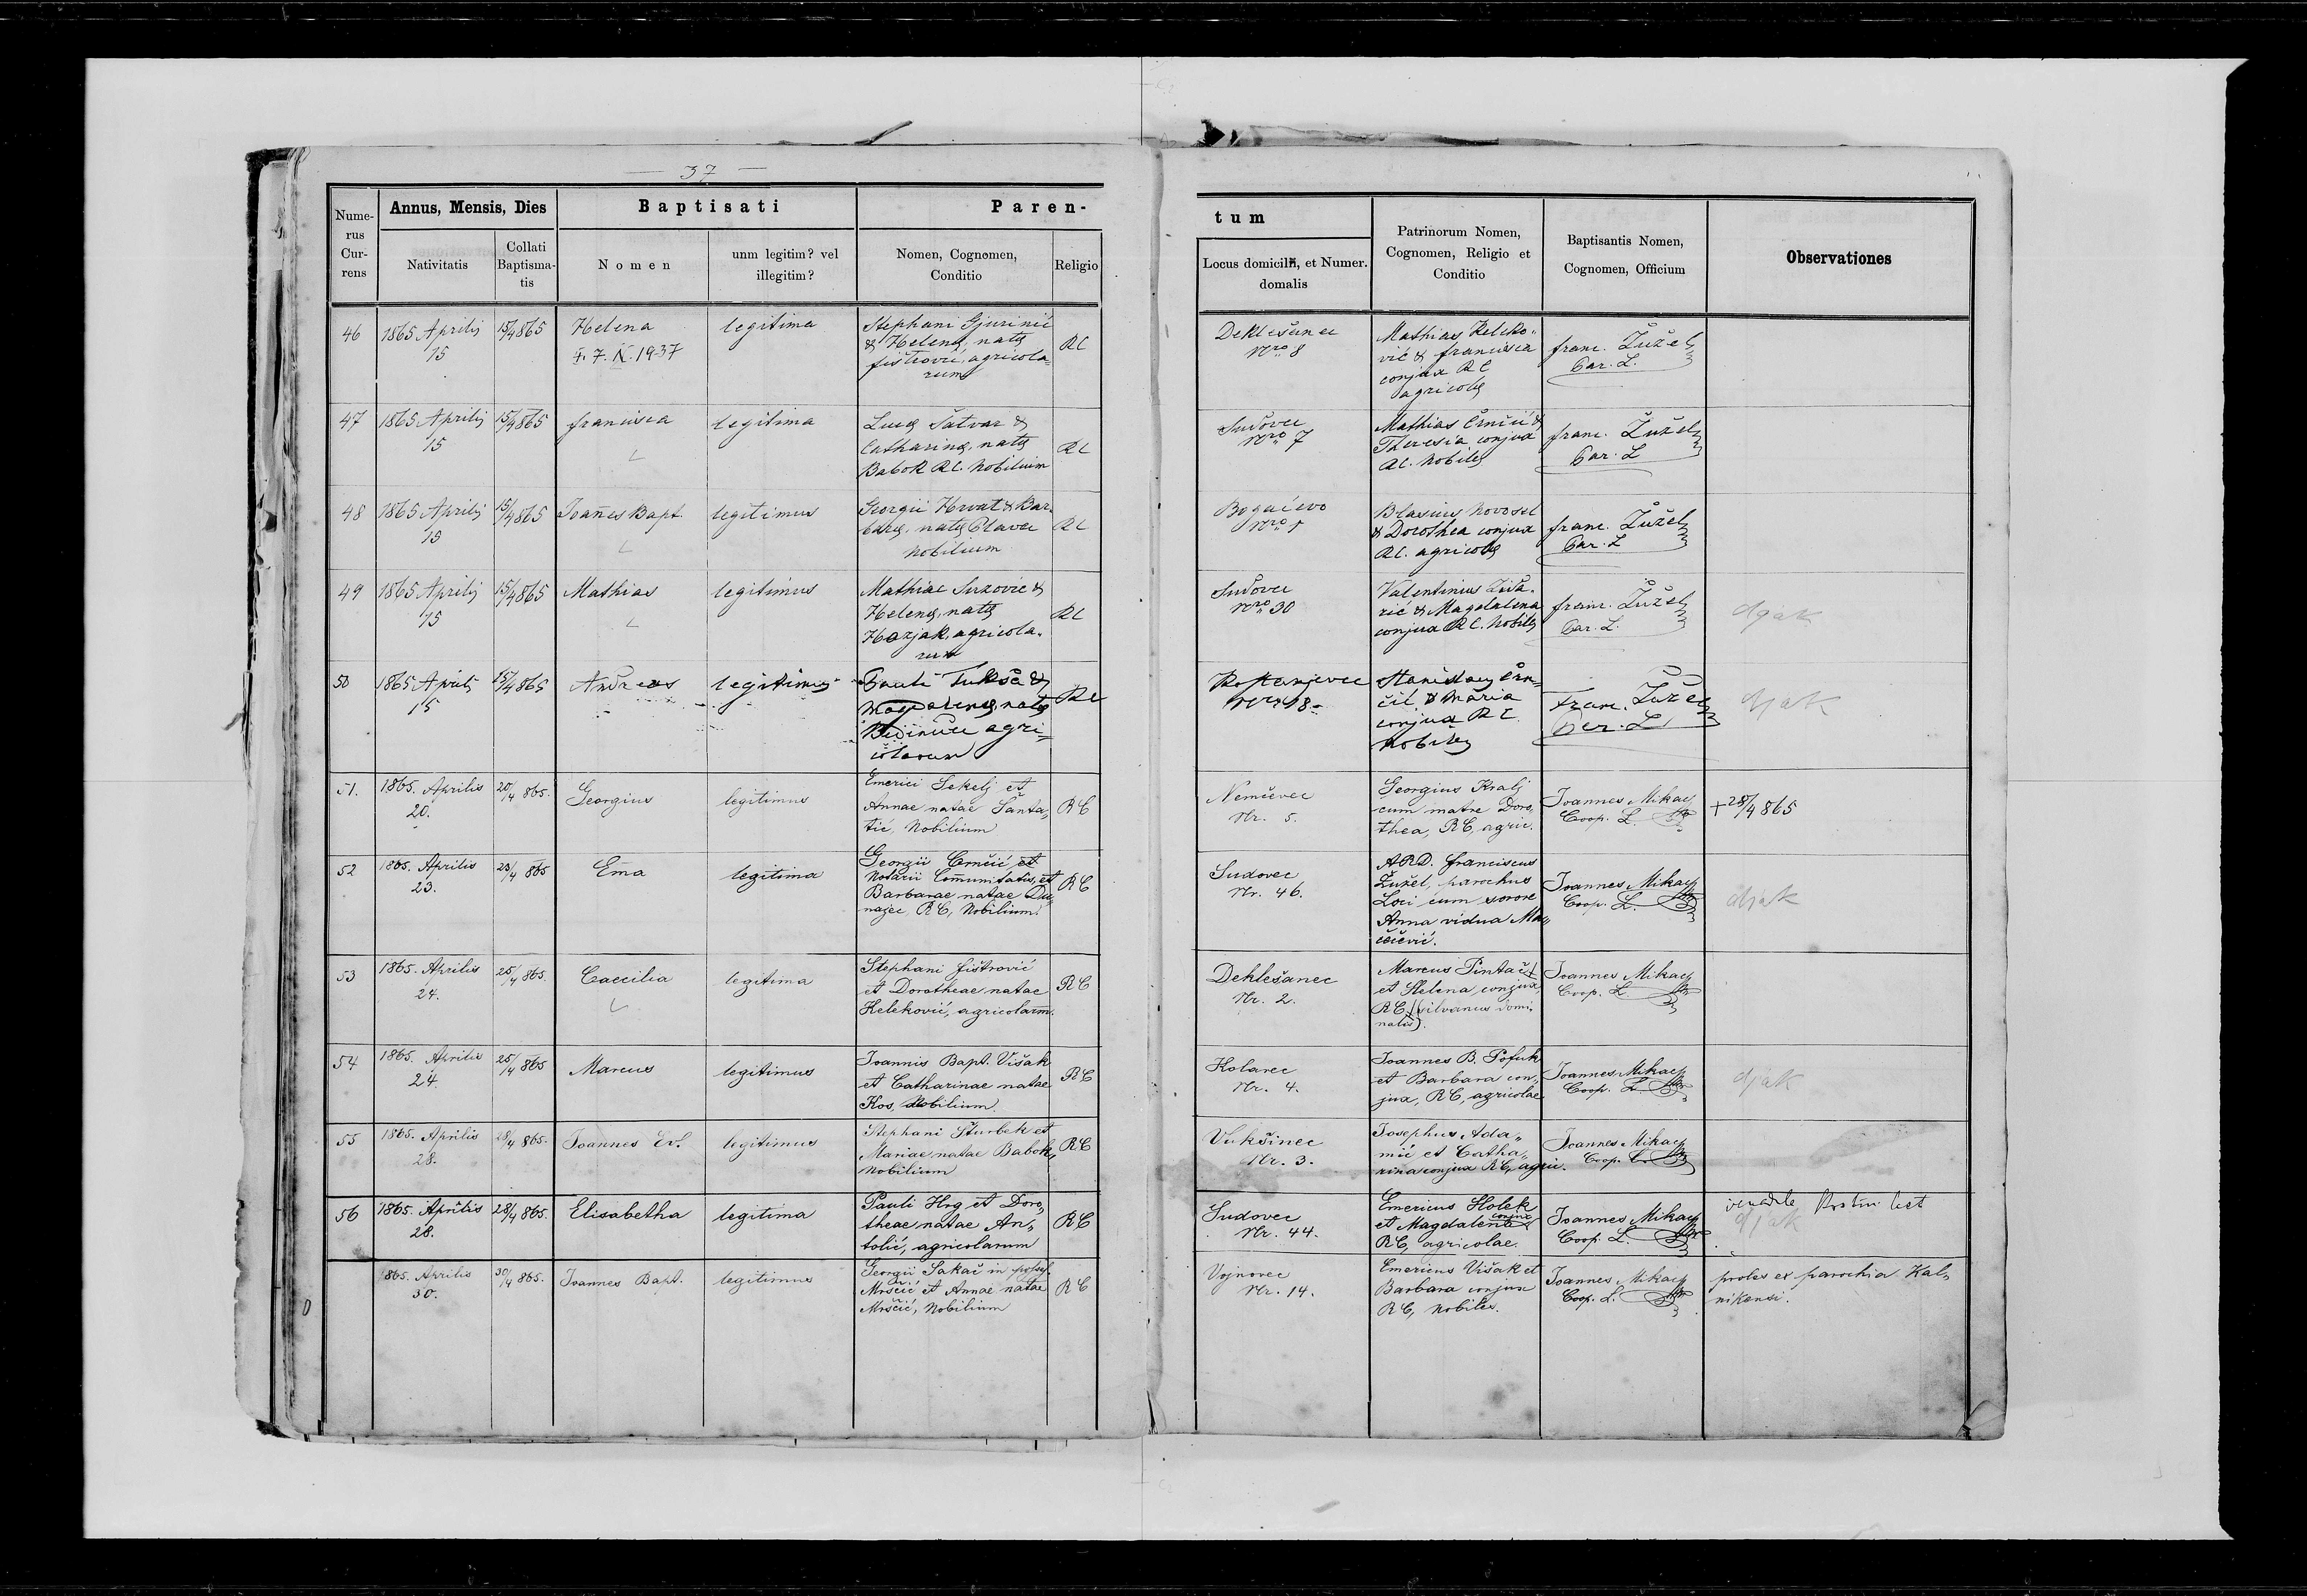 — 37 —
Nume-
rus
Cur-
rens
Annus, Mensis, Dies
Nativitatis
Collati
Baptisma-
tis
Baptisati
Nomen
unm legitim? vel
illegitim?
Paren-
Nomen, Cognomen,
Conditio
Religio
tum
Locus domicilii, et Numer.
domalis
Patrinorum Nomen,
Cognomen, Religio et
Conditio
Baptisantis Nomen,
Cognomen, Officium
Observationes
46
1865 Aprilis
15
15/4 865
Helena
7. IX. 1937
legitima
Stephani Gjurinić
& Helenæ, natæ
fištrović, agricola-
rum
RC
Deklešanec
Nro 8
Mathias Keleko-
vić & francisca
conjux RC
agricolæ
franc. Žužel
Par. L.
47
1865 Aprilis
15
15/4 865
francisca
legitima
Lucæ Šatvar &
Catharinæ, natæ
Babok RC. Nobilium
RC
Sudovec
Nro 7
Mathias Črnčić &
Theresia conjux
RC. Nobiles
franc. Žužel
Par. L
48
1865 Aprilis
15
15/4 865
Joañes Bapt.
legitimus
Georgii Hrvat & Bar-
baræ, natæ Plavec
Nobilium
RC
Bogačevo
Nro 1
Blasius Novosel
& Dorothea conjux
RC. agricolæ
franc. Žužel
Par. L
49
1865 Aprilis
15
15/4 865
Mathias
legitimus
Mathiae &
Helenæ, natæ
Harjak, agricola-
rum
RC
Sudovec
Nro 30
Valentinus
& Magdalena
conjux RC. Nobiles
franc. Žužel
Par. L.
djak
50
1865 Aprilis
15
15/4 865
Andreas
legitimus
Pauli Tuksa &
Magdalenæ, natæ
agri-
colarum
RC
Nro 18
Stanislaus Črn-
čić, & Maria
conjux RC.
Nobiles
Franc. Žužel
Par. L
djak
51.
1865. Aprilis
20.
20/4 865.
Georgius
legitimus
Emerici Sekelj et
Annae natae Šanta-
tić, Nobilium
RC
Nemčevec
Nr. 5.
Georgius Kralj
cum matre Doro-
thea, RC, agric.
Joannes Mikacz
Coop. L.
+ 28/4 865
52
1865. Aprilis
23.
23/4 865
Em̄a
legitima
Georgii Crnčić et
Notarii Com̄unitatis, et
Barbarae natae Du-
najec, RC, Nobilium.
RC
Sudovec
Nr. 46.
ARD. franciscus
Žužel, parochus
Loci cum sorore
Anna vidua Ma-
čičević.
Joannes Mikacz
Coop. L.
djak
53
1865. Aprilis
24.
25/4 865.
Caecilia
legitima
Stephani fištrović
et Dorotheae natae
Keleković, agricolarm.
RC
Deklešanec
Nr. 2.
Marcus Pintač
et Helena, conjux,
RC, (silvanus domi-
nalis).
Joannes Mikacz
Coop. L.
54
1865. Aprilis
24.
25/4 865
Marcus
legitimus
Joannis Bapt. Višak
et Catharinae natae
Kos, Nobilium.
RC
Kolarec
Nr. 4.
Joannes B. Pofuk
et Barbara con-
jux, RC, agricolae
Joannes Mikacz
Coop. L.
djak
55
1865. Aprilis
28.
28/4 865.
Joannes Ev.
legitimus
Stephani Šturbek et
Mariae natae Babok,
Nobilium
RC
Vukšinec
Nr. 3.
Josephus Ada-
mić et Catha-
rina conjux RC, agric.
Joannes Mikacz
Coop. L.
56
1865. Aprilis
28.
28/4 865.
Elisabetha
legitima
Pauli Hrg et Doro-
theae natae An-
tolić, agricolarum
RC
Sudovec
Nr. 44.
Emericus Holek
et Magdalena conjux
RC, agricolae.
Joannes Mikacz
Coop. L.
Krstni list
djak
0
1865. Aprilis
30.
30/4 865.
Joannes Bapt.
legitimus
Georgii Sakač in
Mrščić et Annae natae
Mrščić, Nobilium
RC
Vojnovec
Nr. 14.
Emericus Višak et
Barbara conjux
RC, Nobiles.
Joannes Mikacz
Coop. L.
proles ex parochia Kal-
nikensi.